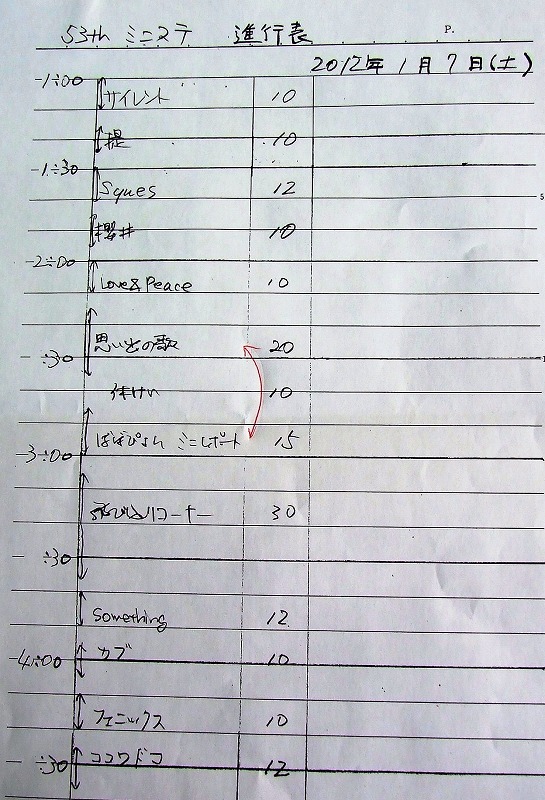 53th ミニステ 進行表
P.
2012年 1月 7日(土)
1:00
サイレント 10
堤 10
1:30
Sques 12
櫻井 10
2:00
Love&Peace 10
思い出の歌 20
:30
休けい 10
ばばぴょん ミニレポート 15
3:00
飛び込みコーナー 30
:30
Something 12
カブ 10
4:00
フェニックス 10
ココワドコ 12
:30